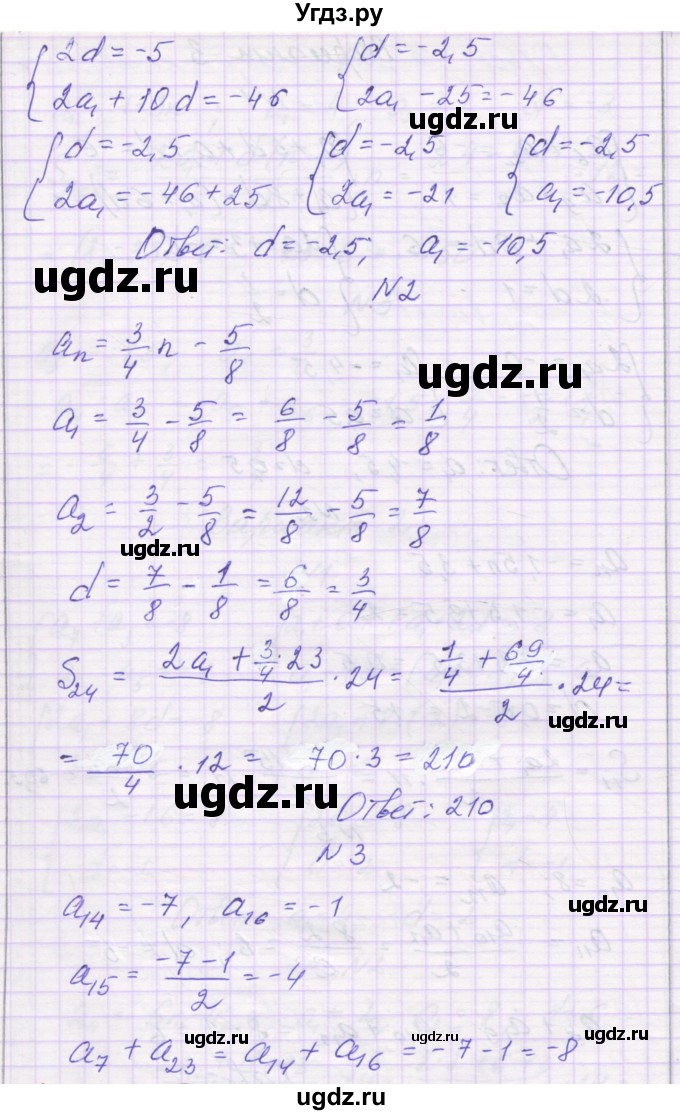 Угдз.ру
{2d = -5 {d = -2,5
{2a₁ + 10d = -46 {2a₁ - 25 = -46
ugdz.ru
{d = -2,5 {d = -2,5 {d = -2,5
{2a₁ = -46 + 25 {2a₁ = -21 {a₁ = -10,5
Ответ: d = -2,5; a₁ = -10,5
ugdz.ru
N2
aₙ = 3/4 n - 5/8
ugdz.ru
a₁ = 3/4 - 5/8 = 6/8 - 5/8 = 1/8
a₂ = 3/2 - 5/8 = 12/8 - 5/8 = 7/8
ugdz.ru
d = 7/8 - 1/8 = 6/8 = 3/4
S₂₄ = (2a₁ + 3/4·23)/2 · 24 = (1/4 + 69/4)/2 · 24 =
ugdz.ru
= 70/4 · 12 = 70·3 = 210
ugdz.ru
Ответ: 210
N3
a₁₄ = -7, a₁₆ = -1
ugdz.ru
a₁₅ = (-7-1)/2 = -4
a₇ + a₂₃ = a₁₄ + a₁₆ = -7 - 1 = -8
ugdz.ru
ugdz.ru
ugdz.ru
ugdz.ru